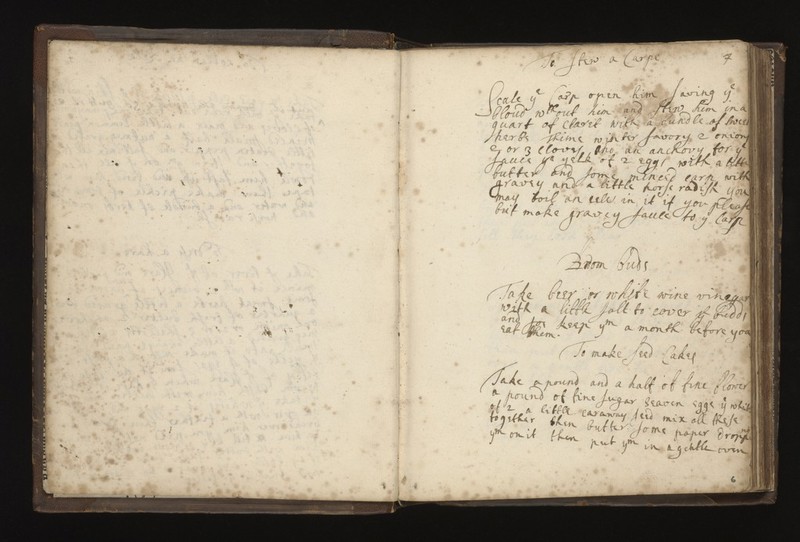 To stew a Carpe
4
Scale yͤ Carp open him saving yͤ
bloud wᵗʰout him and stew him in a
quart of claret with a bundle of sweet
herbs time winter savory 2 onions
2 or 3 cloves an anchovy for yͤ
sauce yͤ yelk of 2 eggs with a little
butter and some minced carp with
gravey and a little horse radish you
may boil an eele in it if you please
but make gravey sauce to yͤ Carp
Broom buds
Take beer or white wine vinegar
with a little salt to cover yͤ budds
and keep yᵐ a month before you
eat them.
To make seed Cakes
Take a pound and a half of fine flower
a pound of fine sugar seaven eggs yͤ whites
of 2 a little carawway seed mix all these
together then butter some paper dropp
yᵐ on it then put yᵐ in a gentle oven
6